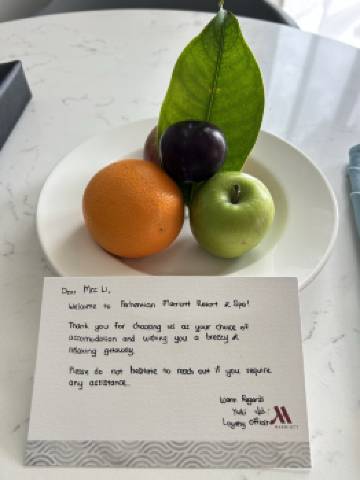 Dear Mrs Li,
Welcome to Perhentian Marriott Resort & Spa!
Thank you for choosing us as your choice of
accomodation and wishing you a breezy &
relaxing getaway.
Please do not hesitate to reach out if you require
any assistance.
Warm Regards
Yuki
Loyalty Officer
MARRIOTT